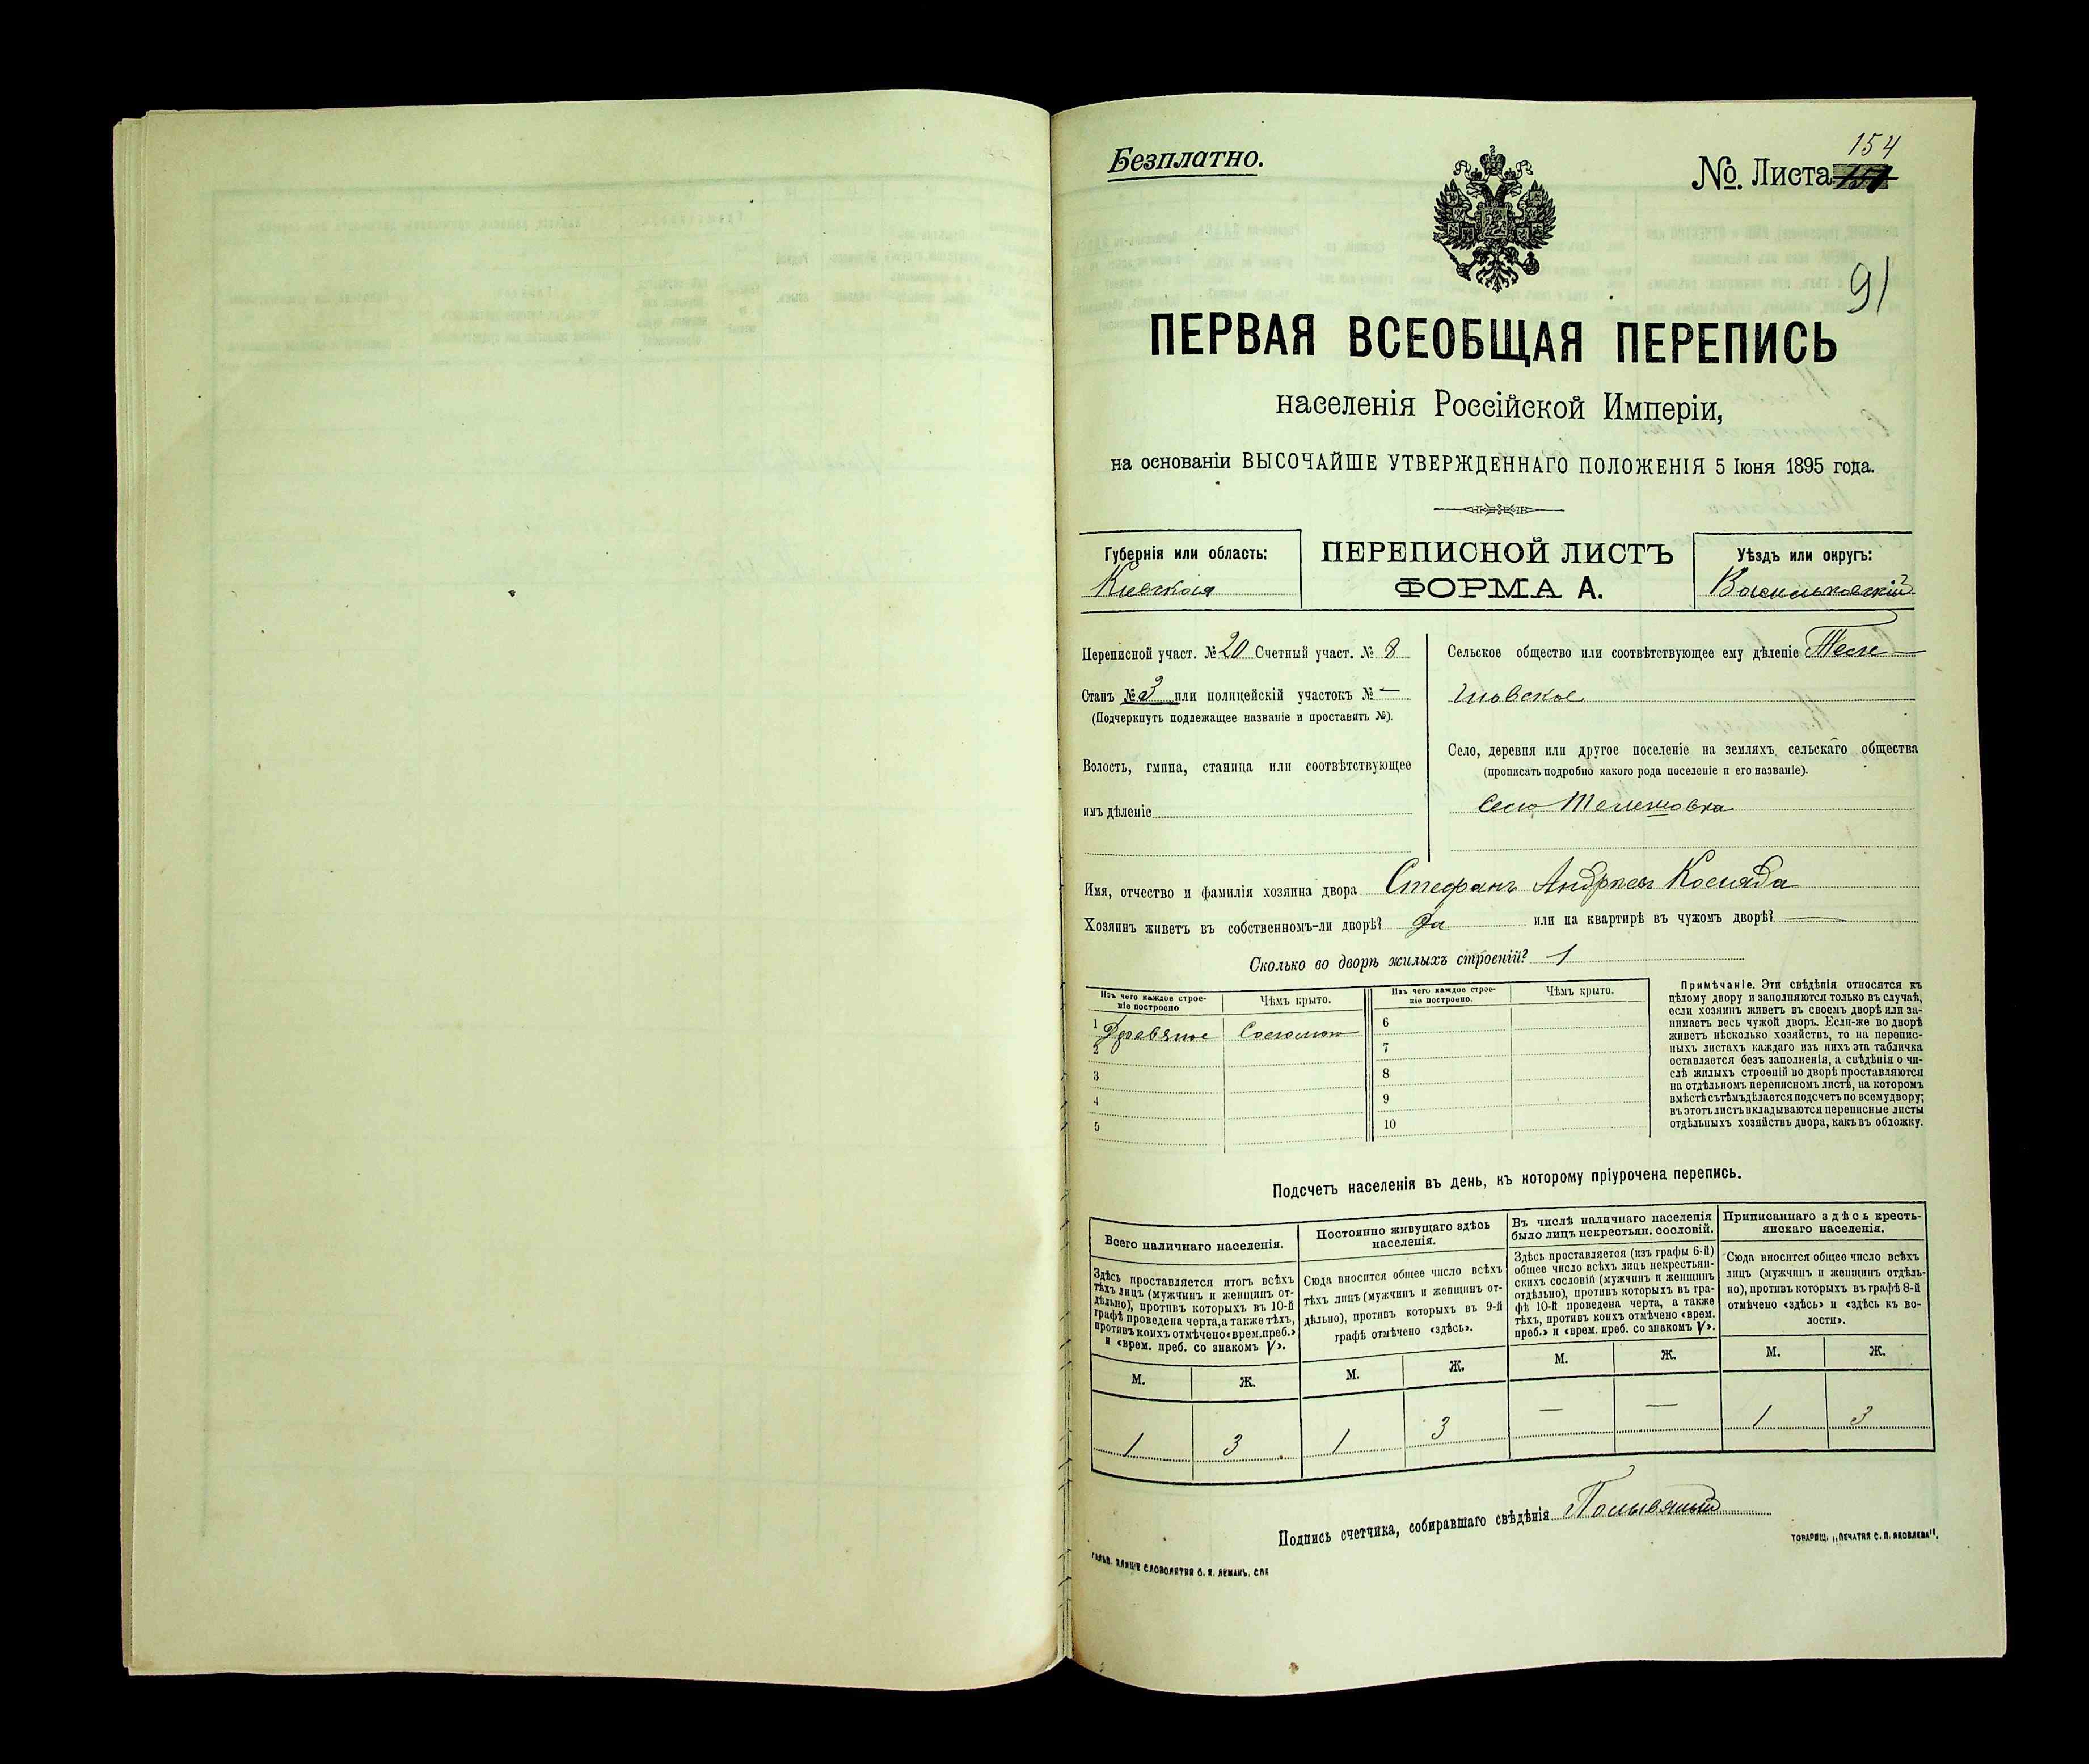 154
Безплатно.
№. Листа
91
ПЕРВАЯ ВСЕОБЩАЯ ПЕРЕПИСЬ
населенія Россійской Имперіи,
на основаніи ВЫСОЧАЙШЕ УТВЕРЖДЕННАГО ПОЛОЖЕНІЯ 5 Іюня 1895 года.
Губернія или область:
Кіевская
ПЕРЕПИСНОЙ ЛИСТЪ
ФОРМА А.
Уѣздъ или округъ:
Васильковскій
Переписной участ. № 20 Счетный участ. № 8
Станъ № 3 или полицейскій участокъ № —
(Подчеркнуть подлежащее названіе и проставить №).
Волость, гмина, станица или соотвѣтствующее
имъ дѣленіе
Сельское общество или соотвѣтствующее ему дѣленіе Теле-
шовское
Село, деревня или другое поселеніе на земляхъ сельскаго общества
(прописать подробно какого рода поселеніе и его названіе).
Село Телешовка
Имя, отчество и фамилія хозяина двора Стефанъ Андреевъ Коляда
Хозяинъ живетъ въ собственномъ-ли дворѣ? Да или на квартирѣ въ чужомъ дворѣ? —
Сколько во дворѣ жилыхъ строеній? 1
Изъ чего каждое строе-
ніе построено
Чѣмъ крыто.
Изъ чего каждое строе-
ніе построено.
Чѣмъ крыто.
1 Деревяное Соломою
2
3
4
5
6
7
8
9
10
Примѣчаніе. Эти свѣдѣнія относятся къ
цѣлому двору и заполняются только въ случаѣ,
если хозяинъ живетъ въ своемъ дворѣ или за-
нимаетъ весь чужой дворъ. Если-же во дворѣ
живетъ нѣсколько хозяйствъ, то на перепис-
ныхъ листахъ каждаго изъ нихъ эта табличка
оставляется безъ заполненія, а свѣдѣнія о чи-
слѣ жилыхъ строеній во дворѣ проставляются
на отдѣльномъ переписномъ листѣ, на которомъ
вмѣстѣ съ тѣмъ дѣлается подсчетъ по всему двору;
въ этотъ листъ вкладываются переписные листы
отдѣльныхъ хозяйствъ двора, какъ въ обложку.
Подсчетъ населенія въ день, къ которому пріурочена перепись.
Всего наличнаго населенія.
Здѣсь проставляется итогъ всѣхъ
тѣхъ лицъ (мужчинъ и женщинъ от-
дѣльно), противъ которыхъ въ 10-й
графѣ проведена черта, а также тѣхъ,
противъ коихъ отмѣчено «врем. преб.»
и «врем. преб. со знакомъ V».
Постоянно живущаго здѣсь
населенія.
Сюда вносится общее число всѣхъ
тѣхъ лицъ (мужчинъ и женщинъ от-
дѣльно), противъ которыхъ въ 9-й
графѣ отмѣчено «здѣсь».
Въ числѣ наличнаго населенія
было лицъ некрестьян. сословій.
Здѣсь проставляется (изъ графы 6-й)
общее число всѣхъ лицъ некрестьян-
скихъ сословій (мужчинъ и женщинъ
отдѣльно), противъ которыхъ въ гра-
фѣ 10-й проведена черта, а также
тѣхъ, противъ коихъ отмѣчено «врем.
преб.» и «врем. преб. со знакомъ V».
Приписаннаго здѣсь кресть-
янскаго населенія.
Сюда вносится общее число всѣхъ
лицъ (мужчинъ и женщинъ отдѣль-
но), противъ которыхъ въ графѣ 8-й
отмѣчено «здѣсь» и «здѣсь къ во-
лости».
М. Ж. М. Ж. М. Ж. М. Ж.
1 3 1 3 — — 1 3
Подпись счетчика, собиравшаго свѣдѣнія Полывяный
СЛОВОЛИТНЯ О. И. ЛЕМАНЪ, СПБ
ТОВАРИЩ. „ПЕЧАТНЯ С. П. ЯКОВЛЕВА“.